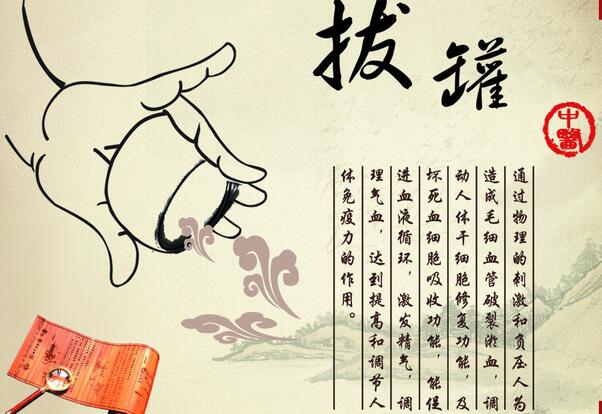 拔罐
中醫
通过物理的刺激和负压人为
造成毛细血管破裂淤血，调
动人体干细胞修复功能，及
坏死血细胞吸收功能，能促
进血液循环，激发精气，调
理气血，达到提高和调节人
体免疫力的作用。